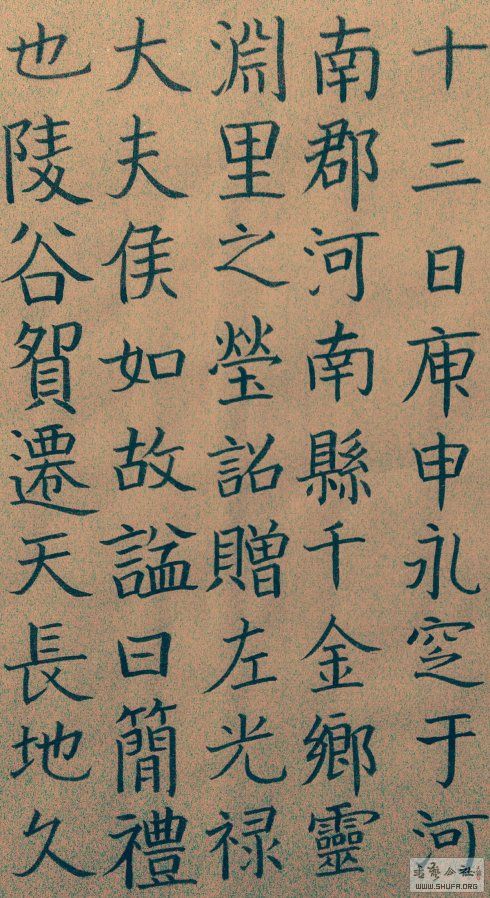 十三日庚申永窆于河
南郡河南縣千金鄉靈
淵里之瑩詔贈左光禄
大夫侯如故謚曰簡禮
也陵谷賀遷天長地久
WWW.SHUFA.ORG